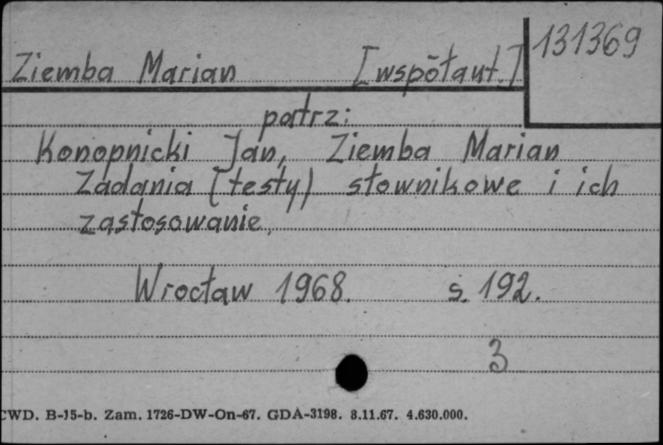 131369
Ziemba Marian [współaut.]
patrz:
Konopnicki Jan, Ziemba Marian
Zadania (testy) słownikowe i ich
zastosowanie.
Wrocław 1968. s. 192.
3
CWD. B-15-b. Zam. 1726-DW-On-67. GDA-3198. 8.11.67. 4.630.000.